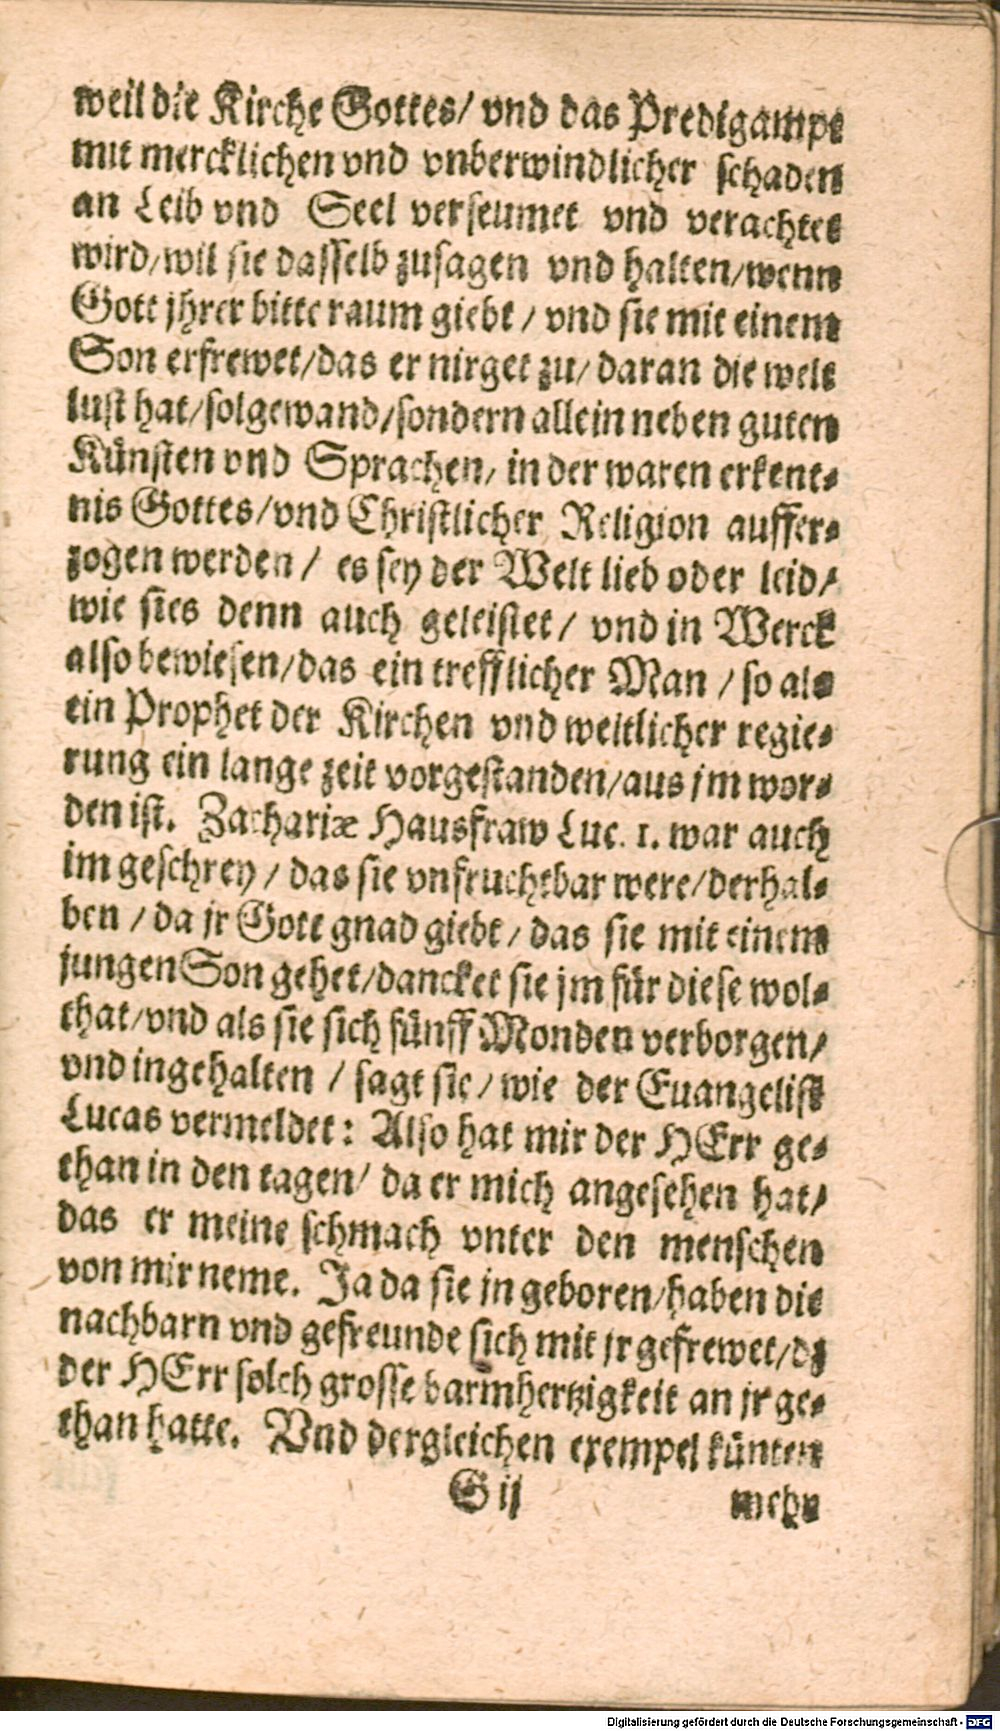 weil die Kirche Gottes/ vnd das Predigampt
mit mercklichen vnd vnberwindlicher schaden
an Leib vnd Seel verseumet vnd verachtet
wird/wil sie dasselb zusagen vnd halten/wenn
Gott jhrer bitte raum giebt / vnd sie mit einem
Son erfrewet/das er nirget zu/ daran die welt
lust hat/sol gewand/sondern allein neben guten
Künsten vnd Sprachen/ in der waren erkent-
nis Gottes/vnd Christlicher Religion auffer-
zogen werden / es sey der Welt lieb oder leid/
wie sies denn auch geleistet / vnd in Werck
also bewiesen/das ein trefflicher Man / so als
ein Prophet der Kirchen vnd weltlicher regie-
rung ein lange zeit vorgestanden/aus jm wor-
den ist. Zachariæ Hausfraw Luc. 1. war auch
im geschrey / das sie vnfruchtbar were/derhal-
ben / da jr Gott gnad giebt / das sie mit einem
jungen Son gehet/dancket sie jm für diese wol-
that/vnd als sie sich fünff Monden verborgen/
vnd ingehalten / sagt sie/ wie der Euangelist
Lucas vermeldet: Also hat mir der HErr ge-
than in den tagen/ da er mich angesehen hat/
das er meine schmach vnter den menschen
von mir neme. Ja da sie jn geboren/haben die
nachbarn vnd gefreunde sich mit jr gefrewet/dz
der HErr solch grosse barmhertzigkeit an jr ge-
than hatte. Vnd dergleichen exempel künten
G ij mehr
Digitalisierung gefördert durch die Deutsche Forschungsgemeinschaft - DFG